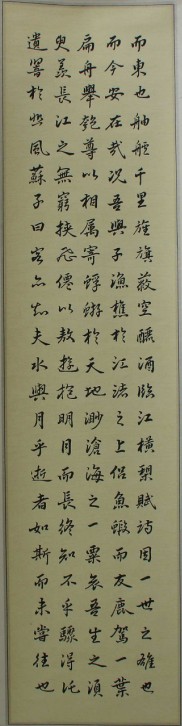 而東也舳艫千里旌旗蔽空釃酒臨江橫槊賦詩固一世之雄也
而今安在哉況吾與子漁樵於江渚之上侶魚蝦而友鹿駕一葉
扁舟舉匏尊以相屬寄蜉蝣於天地渺滄海之一粟哀吾生之須
臾羨長江之無窮挾飛僊以遨遊抱明月而長終知不乎驟得託
遺響於悲風蘇子曰客亦知夫水與月乎逝者如斯而未嘗往也